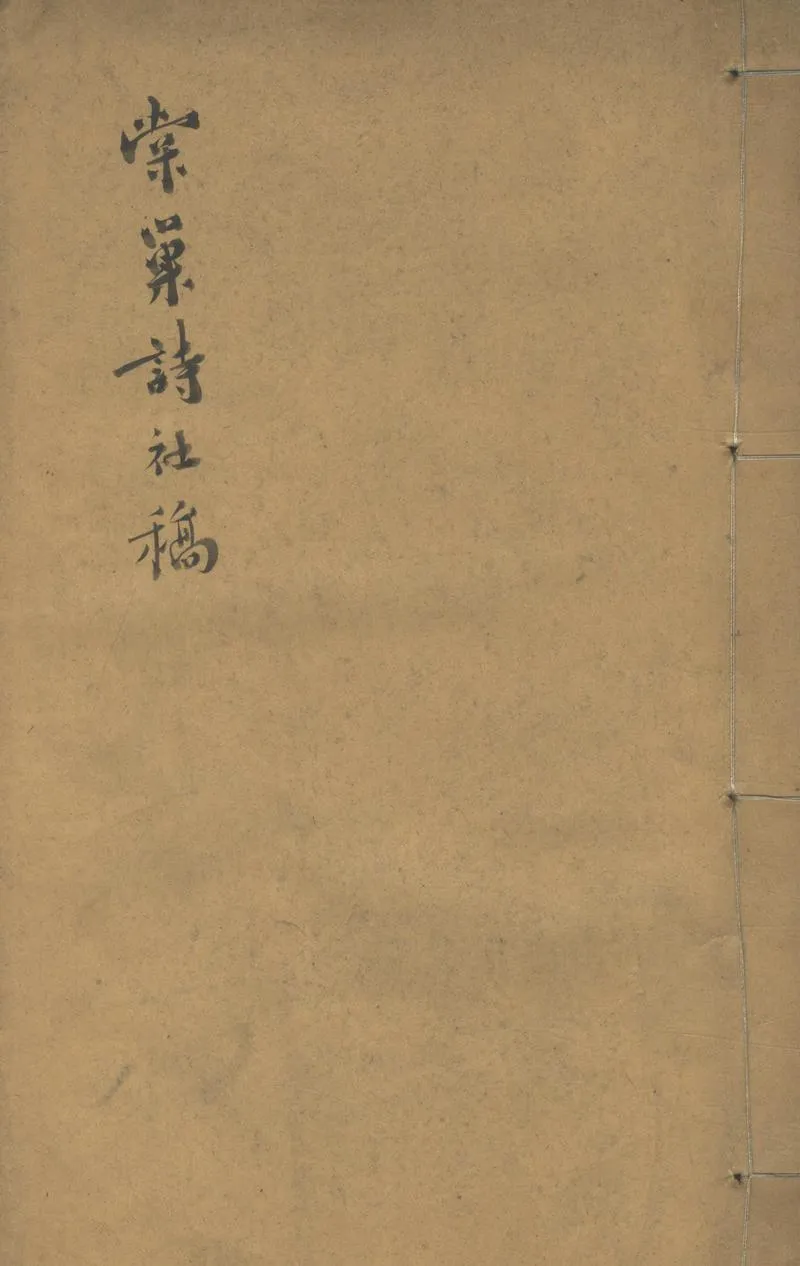 棠巢詩社稿